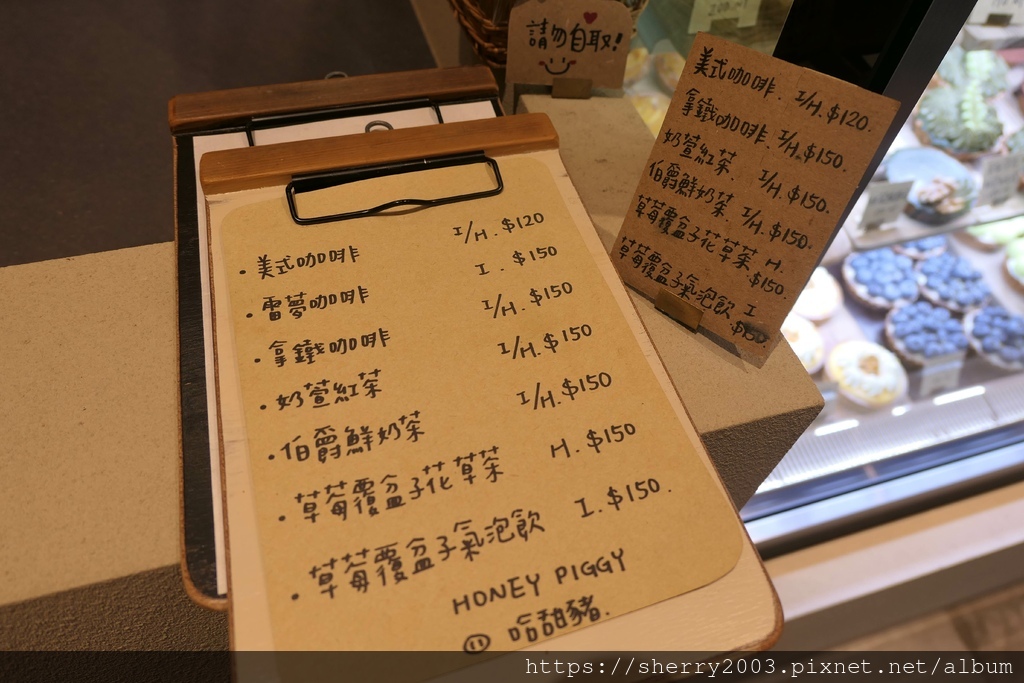 請勿自取!
美式咖啡. I/H. $120.
拿鐵咖啡. I/H. $150.
奶萱紅茶. I/H. $150.
伯爵鮮奶茶. I/H. $150.
草莓覆盆子花草茶 H. $150.
草莓覆盆子氣泡飲 I $150.
・美式咖啡 I/H. $120
・雷夢咖啡 I. $150
・拿鐵咖啡 I/H. $150
・奶萱紅茶 I/H. $150
・伯爵鮮奶茶 I/H. $150
・草莓覆盆子花草茶 H. $150
・草莓覆盆子氣泡飲 I. $150.
HONEY PIGGY
哈甜豬.
https://sherry2003.pixnet.net/album